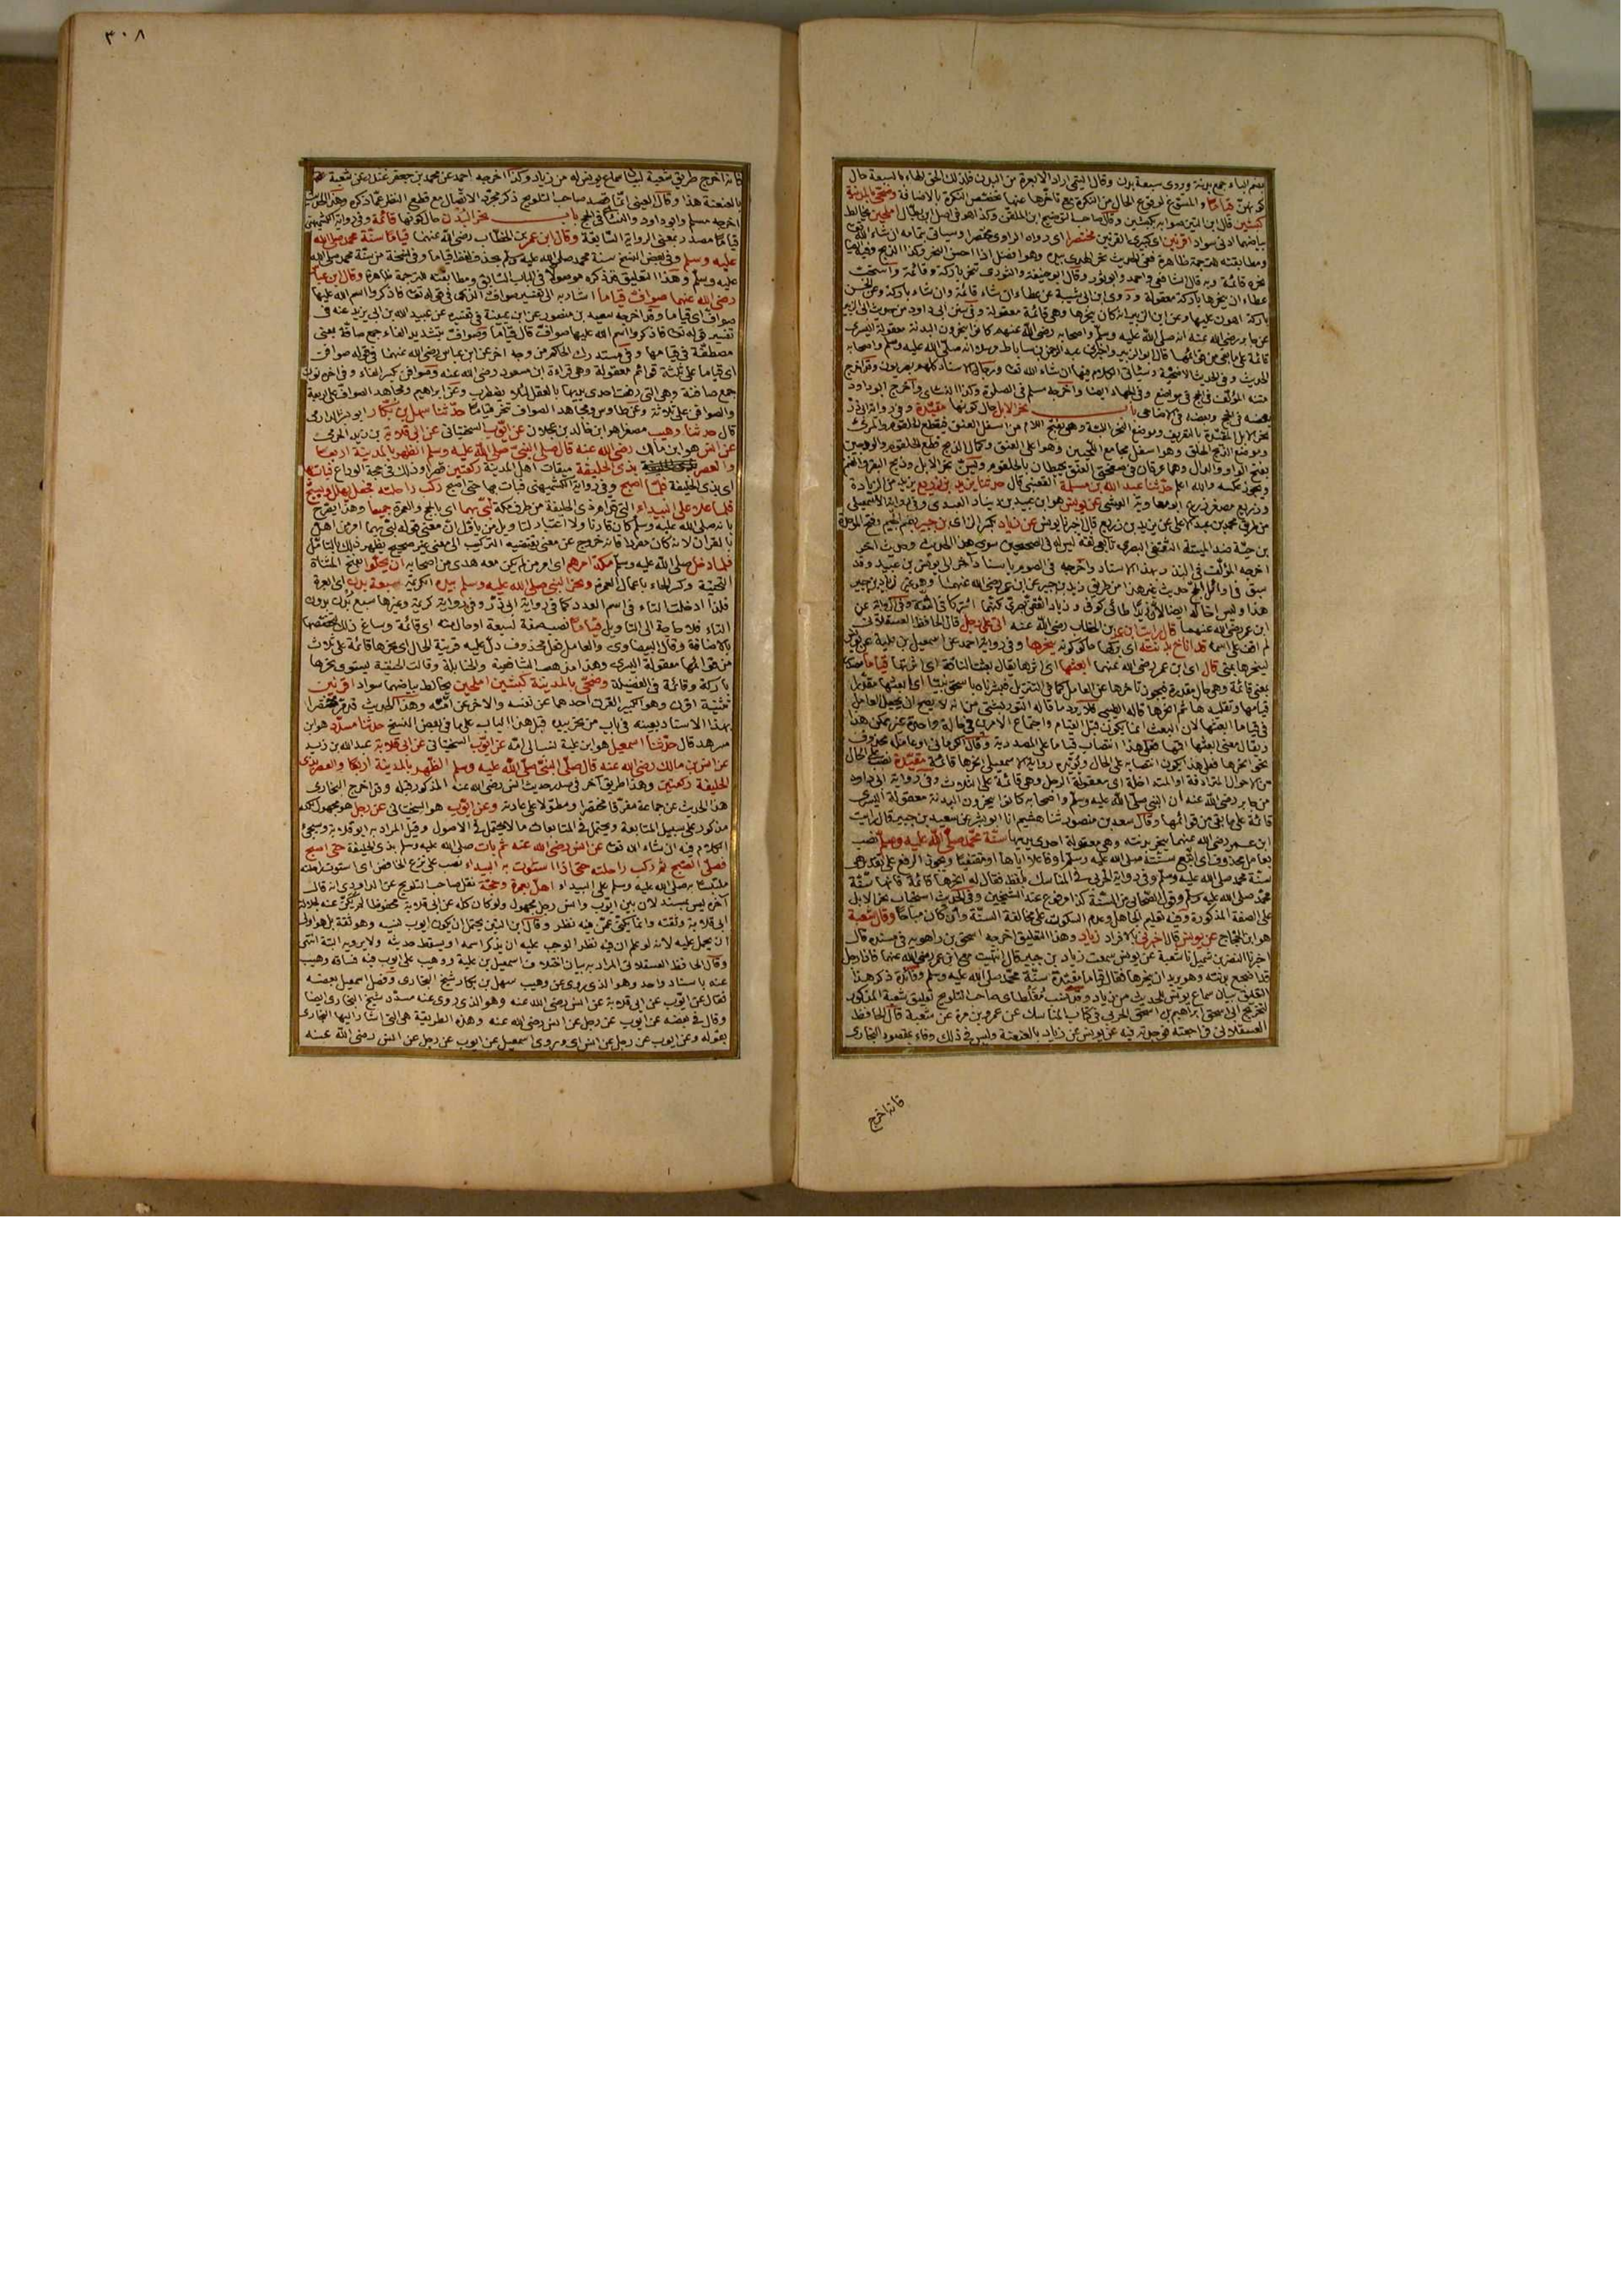 بضم الباء جمع بدنة وروى سبعة بدن وقال التيمي اراد الابعرة من البدن فلذلك الحق الهاء بالسبعة حال
كونهن قياما والمسوغ لوقوع الحال من النكرة مع تأخرها عنها تخصص النكرة بالاضافة وضحى بالمدينة
كبشين قال ابن التين صوابه بكبشين وقال صاحب التوضيح ابن الملقن وكذا هو في اصل ابن بطال املحين يخالط
بياضهما ادنى سواد اقرنين اى كبيرى القرنين مختصرا اى رواه الراوى مختصرا وسيأتى بتمامه ان شاء الله تعالى
ومطابقته للترجمة ظاهرة
نحره قائمة وبه قال الشافعى واحمد وابو ثور وقال ابو حنيفة والثورى تنحر باركة وقائمة واستحب
عطاء ان ينحرها باركة معقولة وروى ابن ابى شيبة عن عطاء ان شاء قائمة وان شاء باركة وعن الحسن
باركة اهون عليها وعن ابن الزبير انه كان ينحرها وهى قائمة معقولة وفى سنن ابى داود من حديث ابى الزبير
عن جابر رضى الله عنه انه صلى الله عليه وسلم واصحابه رضى الله عنهم كانوا ينحرون البدنة معقولة اليسرى
قائمة على ما بقى من قوائمها قال ابو الزبير واخبرنى عبد الرحمن بن ساباط مرسلا انه صلى الله عليه وسلم واصحابه
الحديث وفى الحديث الاضحية وسيأتى الكلام فيها ان شاء الله تعالى ورجال الاسناد كلهم بصريون وقد اخرج
متنه المؤلف فى الحج فى مواضع وفى الجهاد ايضا واخرجه مسلم فى الصلوة وكذا النسائى واخرج ابو داود
بعضه فى الحج وبعضه فى الاضاحى باب نحر الابل حال كونها مقيدة وفى رواية ابى ذر
نحر الابل المقيدة بالتعريف وموضع النحر اللبة وهى بفتح اللام من اسفل العنق فيقطع الحلقوم والمرئ
وموضع الذبح الحلق وهو اسفل مجامع اللحيين وهو اعلى العنق وكمال الذبح قطع الحلقوم والودجين
بفتح الواو والدال وهما عرقان فى صفحتى العنق يحيطان بالحلقوم وليس نحر الابل وذبح البقر والغنم
ويجوز عكسه والله اعلم حدثنا عبد الله بن مسلمة القعنبى قال حدثنا يزيد بن زريع يزيد من الزيادة
وزريع مصغر زرع ابو معاوية العيشى عن يونس هو ابن عبيد بن دينار العبدى وفى رواية الاسمعيلى
من طريق محمد بن عبد الاعلى عن يزيد بن زريع قال اخبرنا يونس عن زياد بكسر الزاى بن جبير بضم الجيم وفتح الموحدة
بن حية ضد الميتة الثقفى البصرى تابعى ثقة ليس له فى الصحيحين سوى هذا الحديث وحديث آخر
اخرجه المؤلف فى النذر بهذا الاسناد واخرجه فى الصوم باسناد آخر الى يونس بن عبيد وقد
سبق فى اوائل الحج حديث غير هذا من طريق زيد بن جبير عن ابن عمر رضى الله عنهما وهو غير زياد بن جبير
هذا وليس اخا له ايضا لان زيدا طائى كوفى وزياد ثقفى بصرى لكنهما اشتركا فى الثقة وفى الرواية عن
ابن عمر رضى الله عنهما قال رايت ابن عمر بن الخطاب رضى الله عنه اتى على رجل قال الحافظ العسقلانى
لم اقف على اسمه قد اناخ بدنته اى بركها حال كونه ينحرها وفى رواية احمد عن اسمعيل بن علية عن يونس
لينحرها بمنى قال اى ابن عمر رضى الله عنهما ابعثها اى اثرها يقال بعثت الناقة اى اثرتها قياما مصدر
بمعنى قائمة وهى حال مقدرة
قيامها وتقلبها ثم انحرها قاله الطيبى فلا يرد ما قاله التوربشتى من انه لا يصح ان يجعل العامل
فى قياما ابعثها لان البعث انما يكون قبل القيام واجتماع الامرين فى حالة واحدة غير ممكن هذا
ويقال معنى ابعثها اقمها فعلى هذا انتصاب قياما على المصدرية وقال الكرمانى او عامله محذوف
نحو انحرها فعلى هذا يكون انتصابه على الحال ويؤيده رواية الاسمعيلى انحرها قائمة مقيدة نصب على الحال
من الاحوال المترادفة او المتداخلة اى معقولة الرجل وهى قائمة على الثلاث وفى رواية ابى داود
من جابر رضى الله عنه ان النبى صلى الله عليه وسلم واصحابه كانوا ينحرون البدنة معقولة اليسرى
قائمة على ما بقى من قوائمها وقال سعيد بن منصور ثنا هشيم انا ابو بشر عن سعيد بن جبير قال رايت
ابن عمر رضى الله عنهما ينحر بدنته وهى معقولة احدى يديها سنة محمد صلى الله عليه وسلم نصب
بعامل محذوف اى اتبع سنته صلى الله عليه وسلم او فاعلا اياها او مقتفيا ويجوز الرفع على تقدير هى
سنة محمد صلى الله عليه وسلم وفى رواية الحربى فى المناسك بلفظ فقال له انحرها قائمة فانها سنة
محمد صلى الله عليه وسلم وقول الصحابى من السنة كذا مرفوع عند الشيخين وفى الحديث استحباب نحر الابل
على الصفة المذكورة وفيه تعليم الجاهل وعدم السكوت على مخالفة السنة وان كان مباحا وقال شعبة
هو ابن الحجاج عن يونس قال اخبرنى بالافراد زياد وهذا التعليق اخرجه اسحق بن راهويه فى مسنده قال
اخبرنا النضر بن شميل نا شعبة عن يونس سمعت زياد بن جبير قال انتهيت مع ابن عمر رضى الله عنهما فاذا رجل
قد اضجع بدنته وهو يريد ان ينحرها فقال قياما مقيدة سنة محمد صلى الله عليه وسلم وفائدة ذكر هذا
التعليق بيان سماع يونس للحديث من زياد وقد نسب مغلطاى صاحب التلويح تعليق شعبة المذكور
لتخريج ابى اسحق ابراهيم بن اسحق الحربى فى كتاب المناسك عن عمرو بن مرزوق عن شعبة قال الحافظ
العسقلانى فراجعته فوجدته فيه عن يونس عن زياد بالعنعنة وليس فى ذلك وفاء بمقصود البخارى
فانه اخرج
٣٠٨
فانه اخرج طريق شعبة لبيان سماع يونس له من زياد وكذا اخرجه احمد عن محمد بن جعفر غندر عن شعبة
بالعنعنة هذا وقال العينى انما قصد صاحب التلويح ذكر مجرد الاتصال مع قطع النظر عما ذكره وهذا الحديث
اخرجه مسلم وابو داود والنسائى فى الحج باب نحر البدن حال كونها قائمة وفى رواية الكشميهنى
قياما مصدر بمعنى الرواية السابقة وقال ابن عمر بن الخطاب رضى الله عنهما قياما سنة محمد صلى الله
عليه وسلم وفى بعض النسخ سنة محمد صلى الله عليه وسلم بحذف لفظ قياما وفى نسخة من سنة محمد صلى الله
عليه وسلم وهذا التعليق قد ذكره موصولا فى الباب السابق ومطابقته للترجمة ظاهرة وقال ابن عباس
رضى الله عنهما صواف قياما اشار به الى تفسير صواف الذى فى قوله تعالى فاذكروا اسم الله عليها
صواف اى قياما وقد اخرجه سعيد بن منصور عن ابن عيينة فى تفسيره عن عبيد الله بن ابى يزيد عنه فى
تفسير قوله تعالى فاذكروا اسم الله عليها صواف قال قياما وصواف بتشديد الفاء جمع صافة بمعنى
مصطفة فى قيامها وفى مستدرك الحاكم من وجه آخر عن ابن عباس رضى الله عنهما فى قوله صوافن
اى قياما على ثلثة قوائم معقولة وهى قراءة ابن مسعود رضى الله عنه وصوافن بكسر الفاء وفى آخره نون
جمع صافنة وهى التى رفعت احدى يديها بالعقل لئلا يضطرب وعن ابراهيم ومجاهد الصواف على اربعة
والصوافن على ثلاثة وعن طاوس ومجاهد الصواف تنحر قياما حدثنا سهل بن بكار ابو بشر الدارمى
قال حدثنا وهيب مصغرا هو ابن خالد بن عجلان عن ايوب السختيانى عن ابى قلابة بن زيد الجرمى
عن انس هو ابن مالك رضى الله عنه قال صلى النبى صلى الله عليه وسلم الظهر بالمدينة اربعا
والعصر بذى الحليفة ميقات اهل المدينة ركعتين قصرا وذلك فى حجة الوداع فبات بها
اى بذى الحليفة فلما اصبح وفى رواية الكشميهنى فبات بها حتى اصبح ركب راحلته فجعل يهلل ويسبح
فلما علا على البيداء التى قدام ذى الحليفة من طرف مكة لبى بهما اى بالحج والعمرة جميعا وهذا يصرح
بانه صلى الله عليه وسلم كان قارنا ولا اعتبار لتاويل من ياول ان معنى قوله لبى بهما امر من اهل
بالقران لانه كان مفردا فانه خروج عن معنى يقتضيه التركيب الى معنى غير صحيح يظهر ذلك بالتامل
فلما دخل صلى الله عليه وسلم مكة امرهم اى امر من لم يكن معه هدى من اصحابه ان يحلوا بفتح المثناة
التحتية وكسر الحاء باعمال العمرة ونحر النبى صلى الله عليه وسلم بيده الكريمة سبعة بدن اى ابعرة
فلذا ادخلت التاء فى اسم العدد كما فى رواية ابى ذر وفى رواية كريمة وغيرها سبع بدن بدون
التاء فلا حاجة الى التاويل قياما نصب صفة لسبعة او حال منه اى قائمة وساغ ذلك لتخصصها
بالاضافة وقال البيضاوى والعامل فعل محذوف دل عليه قرينة الحال اى نحرها قائمة على ثلاث
من قوائمها معقولة اليسرى وهذا مذهب الشافعية والحنابلة وقالت الحنفية يستوى نحرها
باركة وقائمة فى الفضيلة وضحى بالمدينة كبشين املحين يخالط بياضهما سواد اقرنين
تثنية اقرن وهو الكبير القرن احدهما عن نفسه والاخر عن امته وهذا الحديث قد مر مختصرا
بهذا الاسناد بعينه فى باب من نحر بيده قبل هذا الباب على ما فى بعض النسخ حدثنا مسدد هو ابن
مسرهد قال حدثنا اسمعيل هو ابن علية نسب الى امه عن ايوب السختيانى عن ابى قلابة عبد الله بن زيد
عن انس بن مالك رضى الله عنه قال صلى النبى صلى الله عليه وسلم الظهر بالمدينة اربعا والعصر بذى
الحليفة ركعتين وهذا طريق آخر فى صدر حديث انس رضى الله عنه المذكور قبله وقد اخرج البخارى
هذا الحديث عن جماعة مفرقا مختصرا ومطولا على عادته وعن ايوب هو السختيانى عن رجل هو مجهول لكنه
مذكور على سبيل المتابعة ويحتمل فى المتابعات ما لا يحتمل فى الاصول وقيل المراد به ابو قلابة وسيجئ
الكلام فيه ان شاء الله تعالى عن انس رضى الله عنه ثم بات صلى الله عليه وسلم بذى الحليفة حتى اصبح
فصلى الصبح ثم ركب راحلته حتى اذا استوت به البيداء نصب على نزع الخافض اى استوت راحلته
ملتبسا به صلى الله عليه وسلم على البيداء اهل بعمرة وحجة نقل صاحب التلويح عن الداودى انه قال
آخره ليس بمسند لان بين ايوب وانس رجل مجهول ولو كان كله عن ابى قلابة محفوظا لم يكن عنه لجلالة
ابى قلابة وثقته وانما يكنى عمن فيه نظر وقال ابن التين يحتمل ان يكون ايوب نسيه وهو ثقة بل هو اولى
ان يحمل عليه لانه لو علم ان فيه نظر لوجب عليه ان يذكر اسمه او يسقط حديثه ولا يرويه البتة انتهى
وقال الحافظ العسقلانى المراد به بيان اختلاف اسمعيل بن علية ووهيب على ايوب فيه فساقه وهيب
عنه باسناد واحد وهو الذى روى عن وهيب سهل بن بكار شيخ البخارى وفصل اسمعيل بعضه
فقال عن ايوب عن ابى قلابة عن انس رضى الله عنه وهو الذى روى عنه مسدد شيخ البخارى ايضا
وقال فى بعضه عن ايوب عن رجل عن انس رضى الله عنه وهذه الطريقة هى التى اشار اليها البخارى
بقوله وعن ايوب عن رجل عن انس اى وروى اسمعيل عن ايوب عن رجل عن انس رضى الله عنه